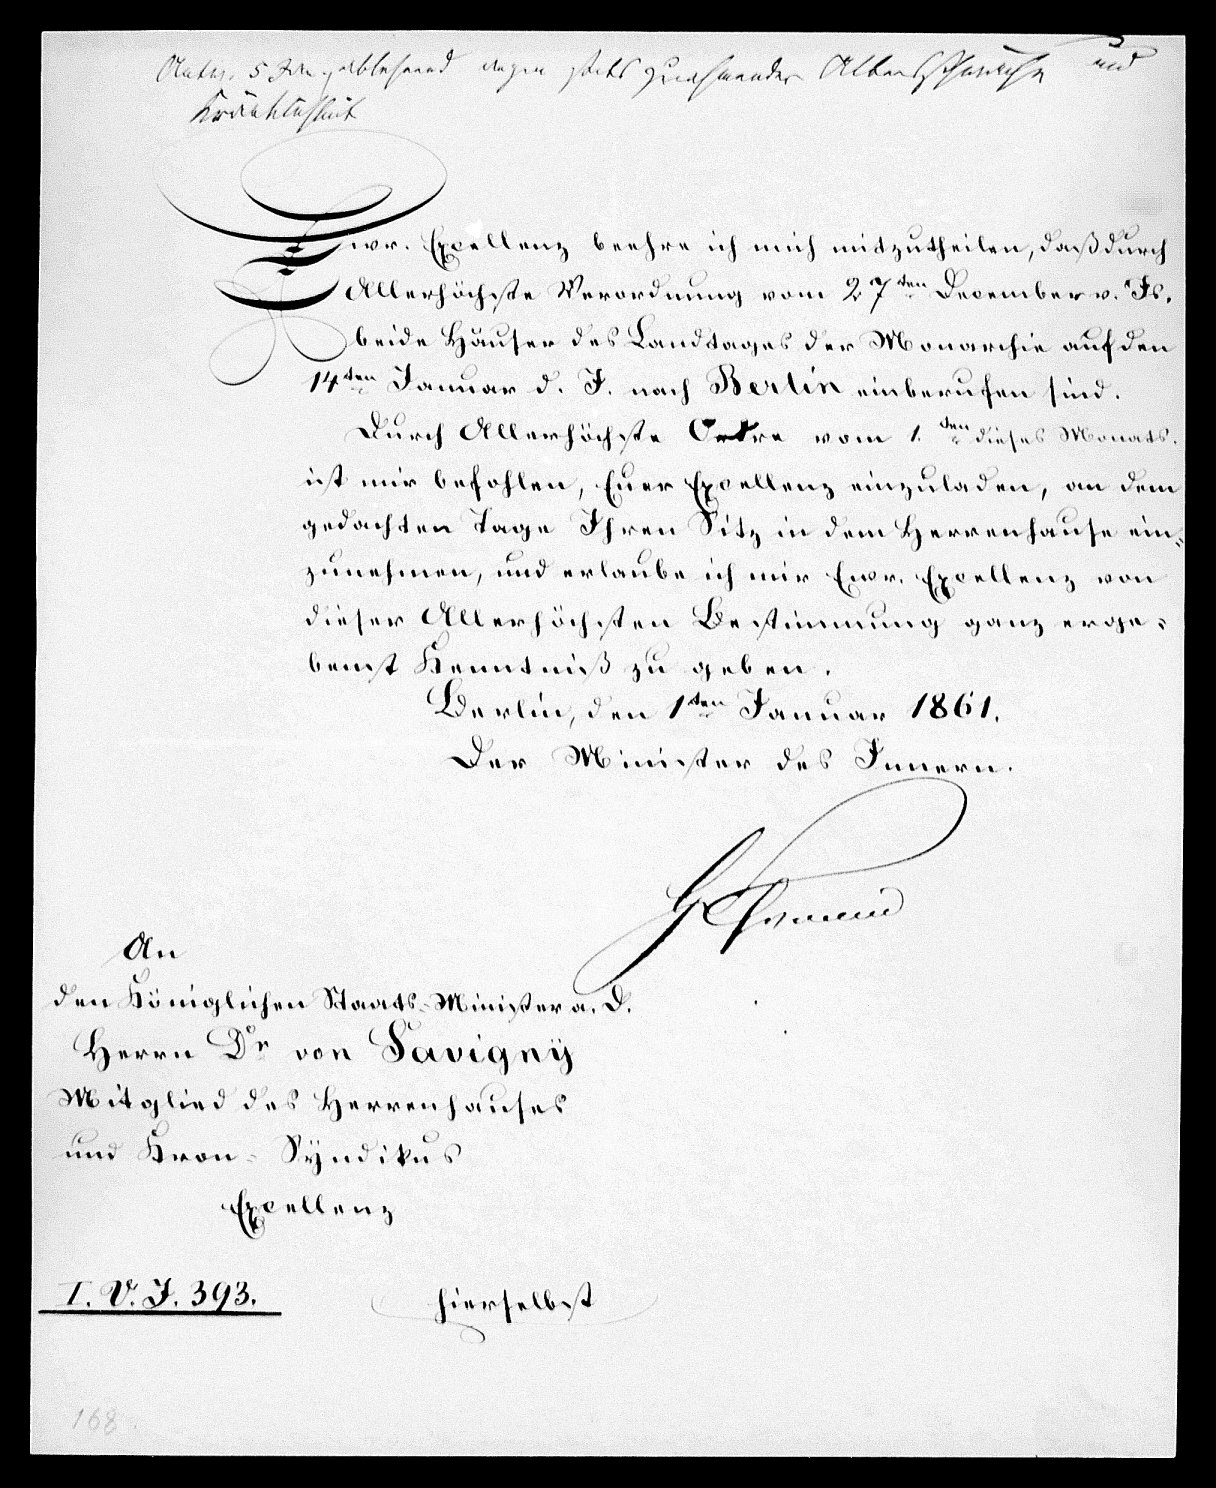 Antw. 5 Jan. ablehnend wegen stets zunehmender Altersschwäche und
Kränklichkeit
Ewr. Excellenz beehre ich mich mitzutheilen, daß durch
Allerhöchste Verordnung vom 27ten December v. Js.
beide Häuser des Landtages der Monarchie auf den
14ten Januar d. J. nach Berlin einberufen sind.
Durch Allerhöchste Ordre vom 1.ten dieses Monats.
ist mir befohlen, Euer Excellenz einzuladen, an dem
gedachten Tage Ihren Sitz in dem Herrenhause ein-
zunehmen, und erlaube ich mir Ewr. Excellenz von
dieser Allerhöchsten Bestimmung ganz erge-
benst Kenntniß zu geben.
Berlin, den 1ten Januar 1861.
Der Minister des Innern.
An
den Königlichen Staats-Minister a. D.
Herrn Dr von Savigny
Mitglied des Herrenhauses
und Kron-Syndikus
Excellenz
I. V. J. 393.
hierselbst
168